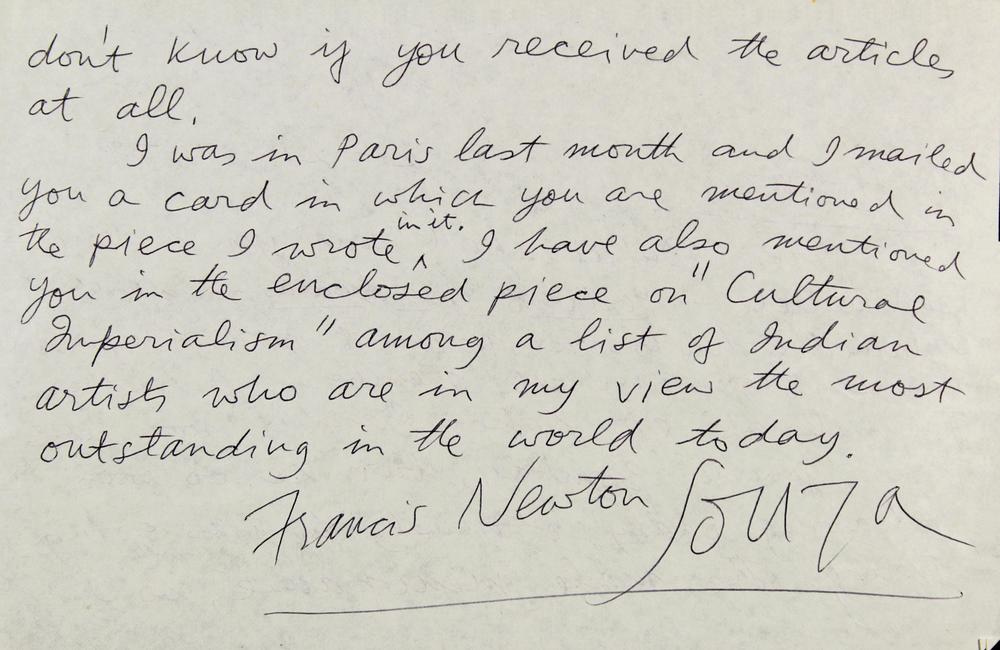 don't know if you received the articles
at all.
I was in Paris last month and I mailed
you a card in which you are mentioned in
the piece I wrote in it. I have also mentioned
you in the enclosed piece on "Cultural
Imperialism" among a list of Indian
artists who are in my view the most
outstanding in the world today.
Francis Newton Souza